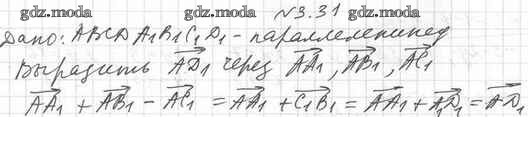 gdz.moda gdz.moda
№3.31
Дано: ABCD A₁B₁C₁D₁ - параллелепипед
Выразить AD₁ через AA₁, AB₁, AC₁
AA₁ + AB₁ - AC₁ = AA₁ + C₁B₁ = AA₁ + A₁D₁ = AD₁